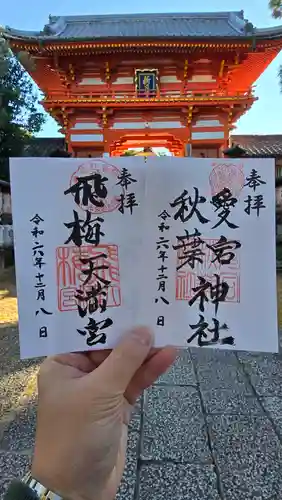 奉拝
愛宕
秋葉
神社
令和六年十二月八日
奉拝
飛梅
天満宮
令和六年十二月八日